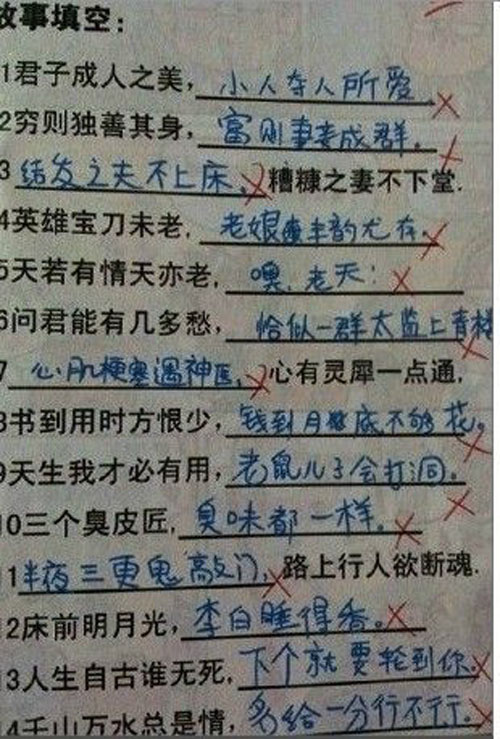 故事填空：
1君子成人之美，小人夺人所爱。
2穷则独善其身，富则妻妾成群。
3结发之夫不上床，糟糠之妻不下堂.
4英雄宝刀未老，老娘丰韵尤存。
5天若有情天亦老，噢，老天！
6问君能有几多愁，恰似一群太监上青楼
7心肌梗塞遇神医，心有灵犀一点通，
8书到用时方恨少，钱到月底不够花。
9天生我才必有用，老鼠儿子会打洞。
10三个臭皮匠，臭味都一样。
11半夜三更鬼敲门，路上行人欲断魂.
12床前明月光，李白睡得香。
13人生自古谁无死，下个就要轮到你。
14千山万水总是情，多给一分行不行。